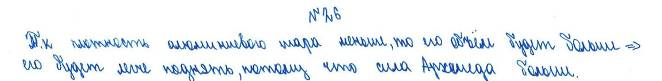 №26
Т.к плотность алюминиевого шара меньше, то его объём будет больше ⇒
его будет легче поднять, потому что сила Архимеда больше.